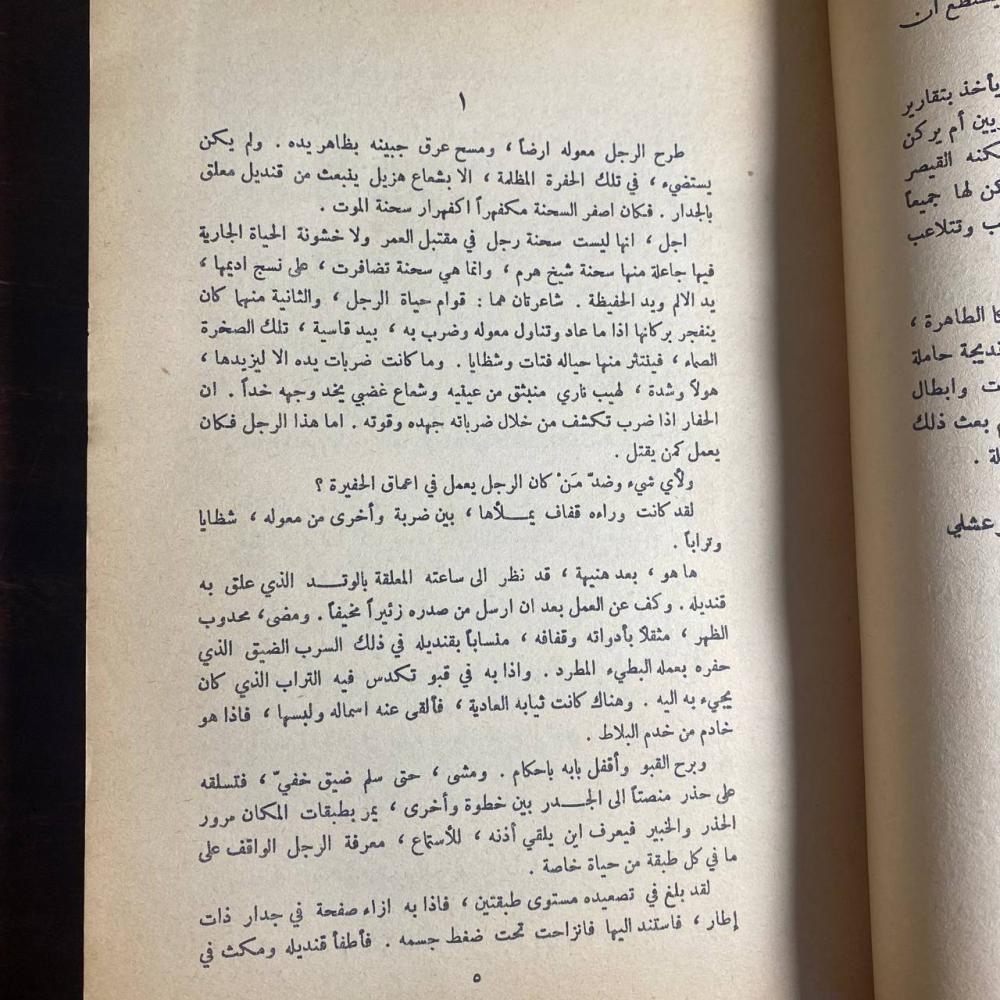 ١
طرح الرجل معوله ارضاً ، ومسح عرق جبينه بظاهر يده . ولم يكن
يستضيء ، في تلك الحفرة المظلمة ، الا بشعاع هزيل ينبعث من قنديل معلق
بالجدار . فكان اصفر السحنة مكفهراً اكفهرار سحنة الموت .
اجل ، انها ليست سحنة رجل في مقتبل العمر ولا خشونة الحياة الجارية
فيها جاعلة منها سحنة شيخ هرم ، وانما هي سحنة تضافرت ، على نسج اديمها ،
يد الالم ويد الحفيظة . شاعرتان هما : قوام حياة الرجل ، والثانية منهما كان
ينفجر بركانها اذا ما عاد وتناول معوله وضرب به ، بيد قاسية ، تلك الصخرة
الصماء ، فينتثر منها حياله فتات وشظايا . وما كانت ضربات يده الا ليزيدها ،
هولاً وشدة ، لهيب ناري منبثق من عينيه وشعاع غضبي يخد وجهه خداً . ان
الحفار اذا ضرب تكشف من خلال ضرباته جهده وقوته . اما هذا الرجل فكان
يعمل كمن يقتل .
ولأي شيء وضدّ مَنْ كان الرجل يعمل في اعماق الحفيرة ؟
لقد كانت وراءه قفاف يمـــلأها ، بين ضربة وأخرى من معوله ، شظايا
وتراباً .
ها هو ، بعد هنيهة ، قد نظر الى ساعته المعلقة بالوتـــد الذي علق به
قنديله . وكف عن العمل بعد ان ارسل من صدره زئيراً مخيفاً . ومضى ، محدوب
الظهر ، مثقلاً بأدواته وقفافه ، منساباً بقنديله في ذلك السرب الضيق الذي
حفره بعمله البطيء المطرد . واذا به في قبو تكدس فيه التراب الذي كان
يجيء به اليه . وهناك كانت ثيابه العادية ، فألقى عنه اسماله ولبسها ، فاذا هو
خادم من خدم البلاط .
وبرح القبو وأقفل بابه باحكام . ومشى ، حتى سلم ضيق خفيّ ، فتسلقه
على حذر منصتاً الى الجـــدر بين خطوة وأخرى ، يمر بطبقات المكان مرور
الحذر والخبير فيعرف اين يلقي أذنه ، للأستماع ، معرفة الرجل الواقف على
ما في كل طبقة من حياة خاصة .
لقد بلغ في تصعيده مستوى طبقتين ، فاذا به ازاء صفحة في جدار ذات
إطار ، فاستند اليها فانزاحت تحت ضغط جسمه . فأطفأ قنديله ومكث في
٥
ان
يأخذ بتقارير
أم يركن
القيصر
لها جميعاً
وتتلاعب
الطاهرة ،
حاملة
وابطال
بعث ذلك